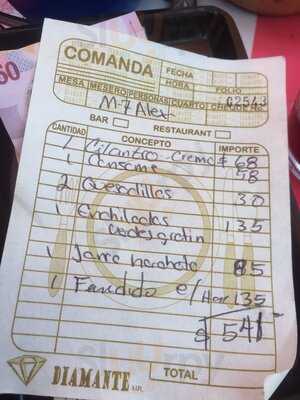 50
COMANDA
FECHA
HORA
FOLIO
MESA MESERO PERSONAS CUARTO
62543
M-7 Alex
BAR RESTAURANT
CANTIDAD CONCEPTO IMPORTE
1 Cilantro Crema $ 68
1 Consome 58
2 Quesadillas 30
1 Enchiladas 135
gratin
1 Jarra 85
1 Fundido c/ 135
$ 541
TOTAL
DIAMANTE